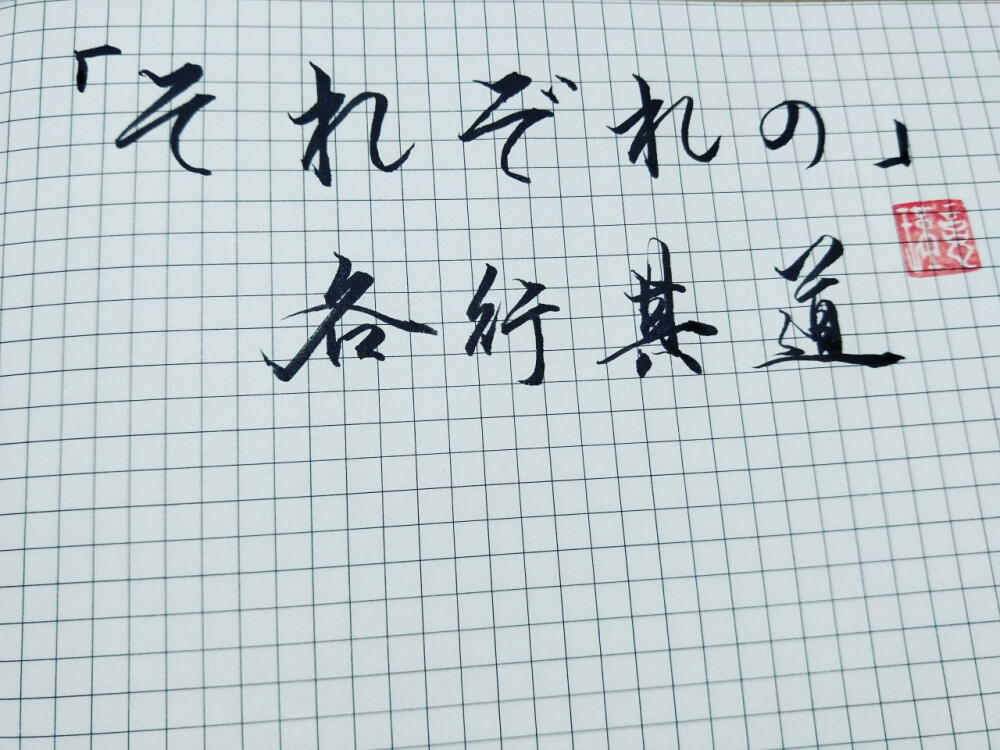 「それぞれの」
各行其道